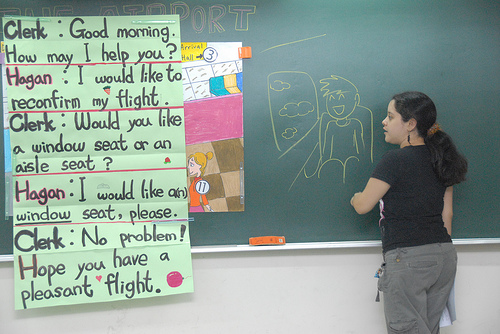 THE AIRPORT
Clerk : Good morning.
How may I help you?
Hagan : I would like to
reconfirm my flight.
Clerk : Would you like
a window seat or an
aisle seat ?
Hagan : I would like a(n)
window seat, please.
Clerk : No problem!
Hope you have a
pleasant flight.
Arrival
Hall → 3
11